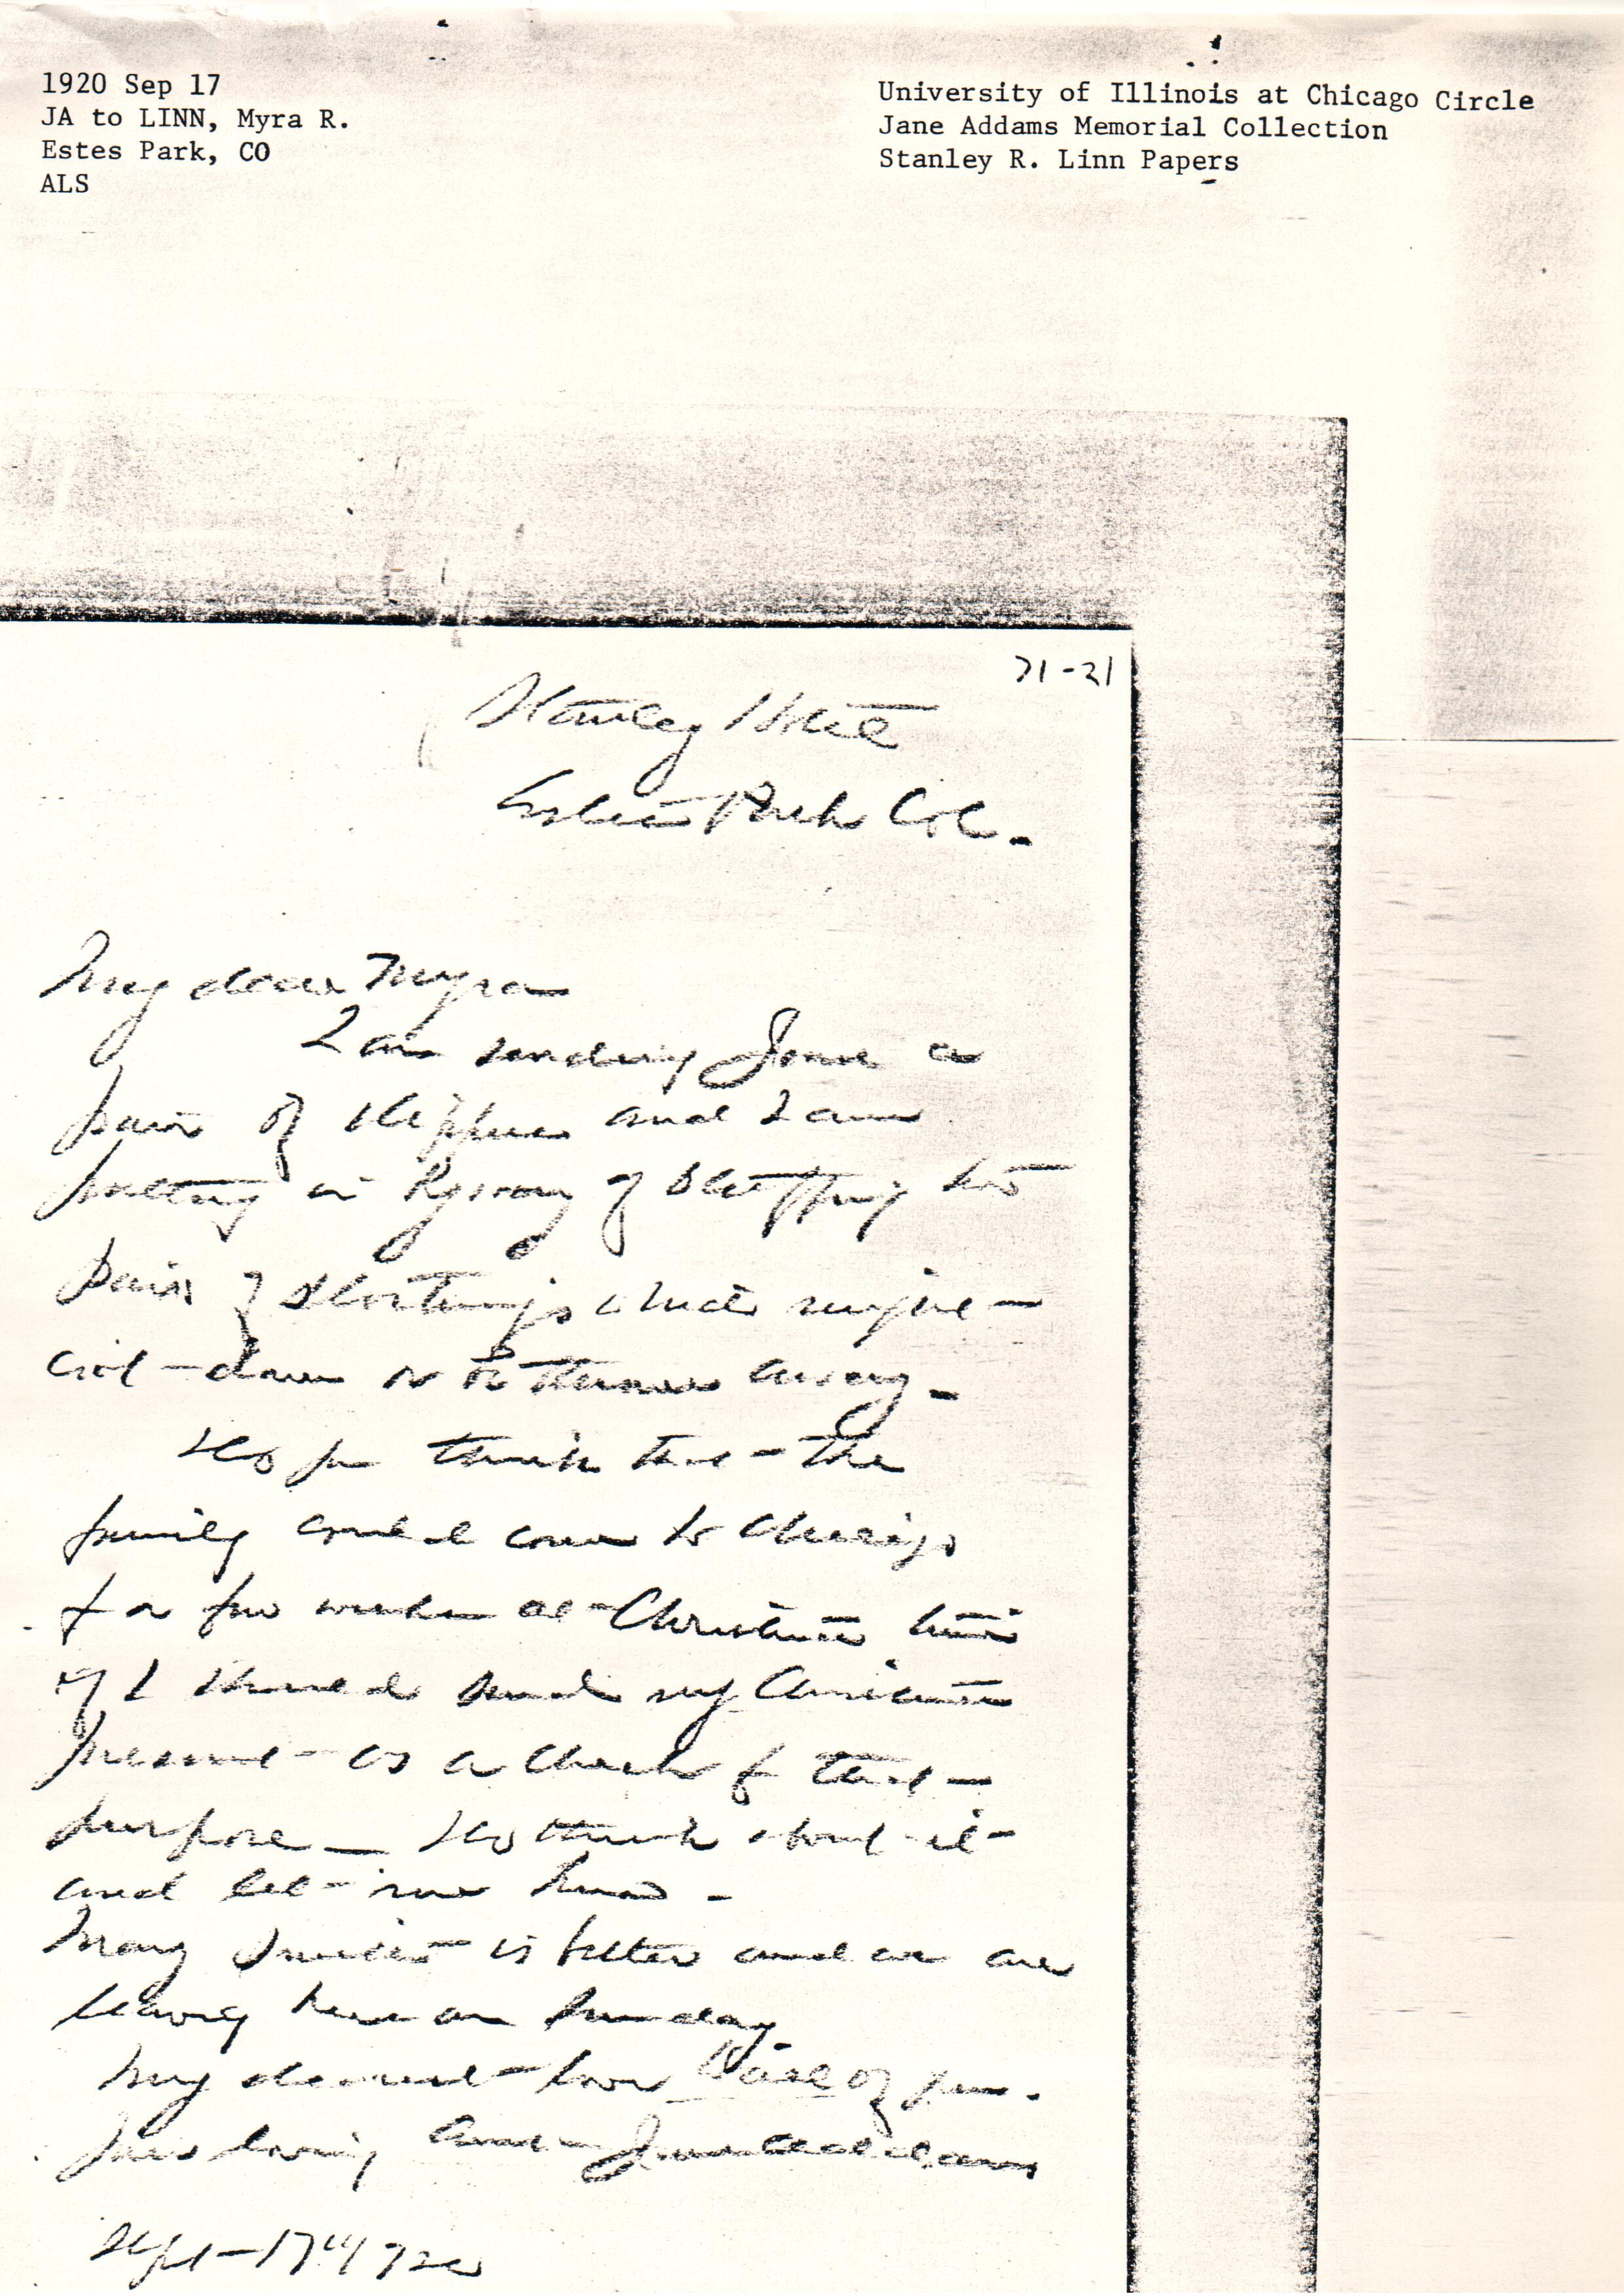 1920 Sep 17
JA to LINN, Myra R.
Estes Park, CO
ALS
University of Illinois at Chicago Circle
Jane Addams Memorial Collection
Stanley R. Linn Papers
71-21
Stanley Hotel
Estes Park Col.
My dear Myra
I am sending Jane a
pair of slippers and I am
putting in by way of stuffing two
pairs of stockings which may be
cut down or thrown away -
Do you think that the
family could come to Chicago
for a few weeks at Christmas time
if I should send my Christmas
present as a check for that
purpose — Do think about it
and let me know -
Mary Smith is better and we are
leaving here on Sunday.
My dearest love to all of you.
Your loving Aunt Jane Addams
Sept 17" 1920